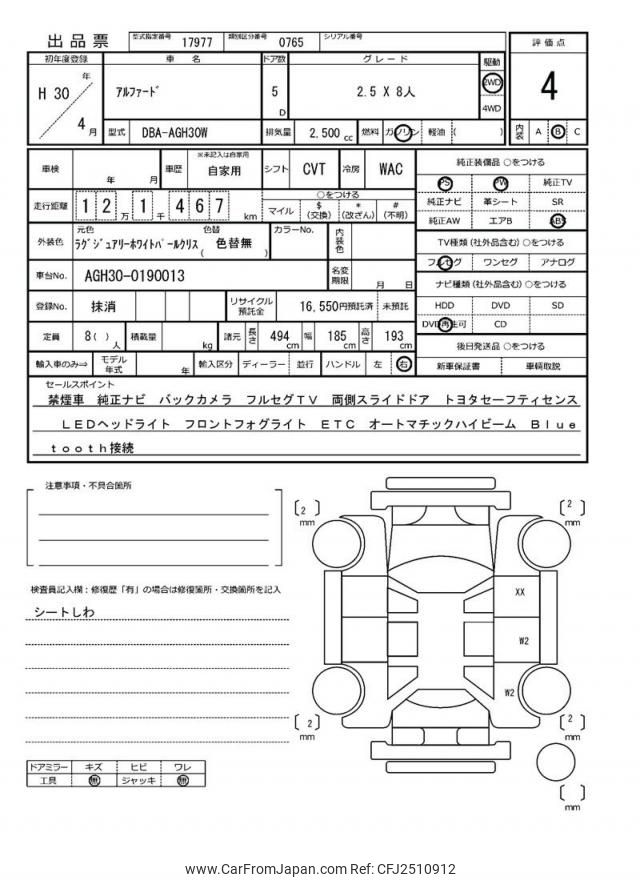 出品票 型式指定番号 17977 類別区分番号 0765 シリアル番号
評価点
4
初年度登録 車名 ドア数 グレード 駆動
H 30 年 4 月 アルファード 5 D 2.5 X 8人 2WD 4WD
型式 DBA-AGH30W 排気量 2,500 cc 燃料 ガソリン 軽油 ( ) 内装 A B C
車検 年 月 車歴 ※未記入は自家用 自家用 シフト CVT 冷房 WAC
純正装備品 ○をつける
PS PW 純正TV
純正ナビ 革シート SR
純正AW エアB ABS
走行距離 1 2 万 1 千 4 6 7 km
○をつける
マイル $ (交換) * (改ざん) # (不明)
外装色 元色 色替
ラグジュアリーホワイトパールクリス ( 色替無 )
カラーNo. 内装色
TV種類 (社外品含む) ○をつける
フルセグ ワンセグ アナログ
車台No. AGH30-0190013 名変期限 月 日
ナビ種類 (社外品含む) ○をつける
HDD DVD SD
DVD再生可 CD
登録No. 抹消 リサイクル預託金 16,550円預託済 未預託
定員 8( ) 人 積載量 kg 諸元 長さ 494 cm 幅 185 cm 高さ 193 cm
後日発送品 ○をつける
新車保証書 車輌取説
輸入車のみ⇒ モデル年式 年 輸入区分 ディーラー 並行 ハンドル 左 右
セールスポイント
禁煙車 純正ナビ バックカメラ フルセグTV 両側スライドドア トヨタセーフティセンス
LEDヘッドライト フロントフォグライト ETC オートマチックハイビーム Blue
tooth接続
注意事項・不具合箇所
検査員記入欄：修復歴「有」の場合は修復箇所・交換箇所を記入
シートしわ
[ 2 ] mm
[ 2 ] mm
XX
W2
W2
[ 2 ] mm
[ 2 ] mm
[ ] mm
ドアミラー キズ ヒビ ワレ
工具 無 ジャッキ 無
www.CarFromJapan.com Ref: CFJ2510912